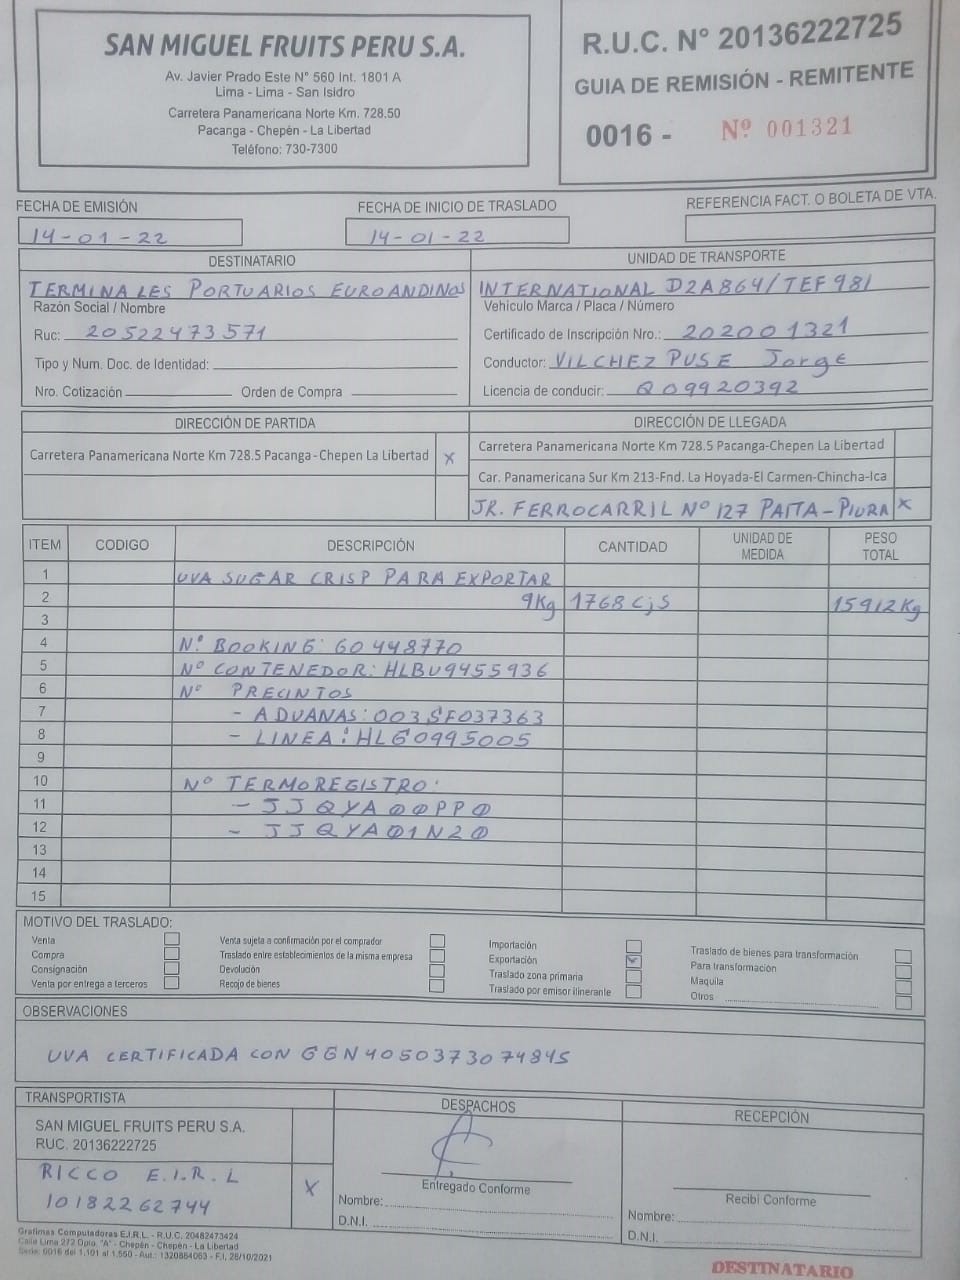 SAN MIGUEL FRUITS PERU S.A.
Av. Javier Prado Este N° 560 Int. 1801 A
Lima - Lima - San Isidro
Carretera Panamericana Norte Km. 728.50
Pacanga - Chepén - La Libertad
Teléfono: 730-7300
R.U.C. N° 20136222725
GUIA DE REMISIÓN - REMITENTE
0016 - Nº 001321
FECHA DE EMISIÓN
14-01-22
FECHA DE INICIO DE TRASLADO
14-01-22
REFERENCIA FACT. O BOLETA DE VTA.
DESTINATARIO
TERMINALES PORTUARIOS EUROANDINOS
Razón Social / Nombre
Ruc: 20522473571
Tipo y Num. Doc. de Identidad:
Nro. Cotización Orden de Compra
UNIDAD DE TRANSPORTE
INTERNATIONAL D2A864/TEF981
Vehiculo Marca / Placa / Número
Certificado de Inscripción Nro.: 202001321
Conductor: VILCHEZ PUSE Jorge
Licencia de conducir: Q09920392
DIRECCIÓN DE PARTIDA
Carretera Panamericana Norte Km 728.5 Pacanga-Chepen La Libertad X
DIRECCIÓN DE LLEGADA
Carretera Panamericana Norte Km 728.5 Pacanga-Chepen La Libertad
Car. Panamericana Sur Km 213-Fnd. La Hoyada-El Carmen-Chincha-Ica
JR. FERROCARRIL Nº 127 PAITA-PIURA X
ITEM CODIGO DESCRIPCIÓN CANTIDAD UNIDAD DE MEDIDA PESO TOTAL
1 UVA SUGAR CRISP PARA EXPORTAR
2 9Kg 1768 CjS 15912Kg
3
4 Nº BOOKING: 60448770
5 Nº CONTENEDOR: HLBU9455936
6 Nº PRECINTOS
7 - ADUANAS: 003SF037363
8 - LINEA: HLG0995005
9
10 Nº TERMOREGISTRO:
11 - JJQYA00PP0
12 - JJQYA01N20
13
14
15
MOTIVO DEL TRASLADO:
Venta
Compra
Consignación
Venta por entrega a terceros
Venta sujeta a confirmación por el comprador
Traslado entre establecimientos de la misma empresa
Devolución
Recojo de bienes
Importación
Exportación
Traslado zona primaria
Traslado por emisor itinerante
Traslado de bienes para transformación
Para transformación
Maquila
Otros
OBSERVACIONES
UVA CERTIFICADA CON GGN 4050373074845
TRANSPORTISTA
SAN MIGUEL FRUITS PERU S.A.
RUC. 20136222725
RICCO E.I.R.L X
10182262744
DESPACHOS
Entregado Conforme
Nombre:
D.N.I.
RECEPCIÓN
Recibi Conforme
Nombre:
D.N.I.
Grafimas Computadoras E.I.R.L. - R.U.C. 20482473424
Calle Lima 272 Dpto. "A" - Chepén - Chepén - La Libertad
Serie: 0016 del 1,101 al 1,550 - Aut.: 1320884063 - F.I. 26/10/2021
DESTINATARIO